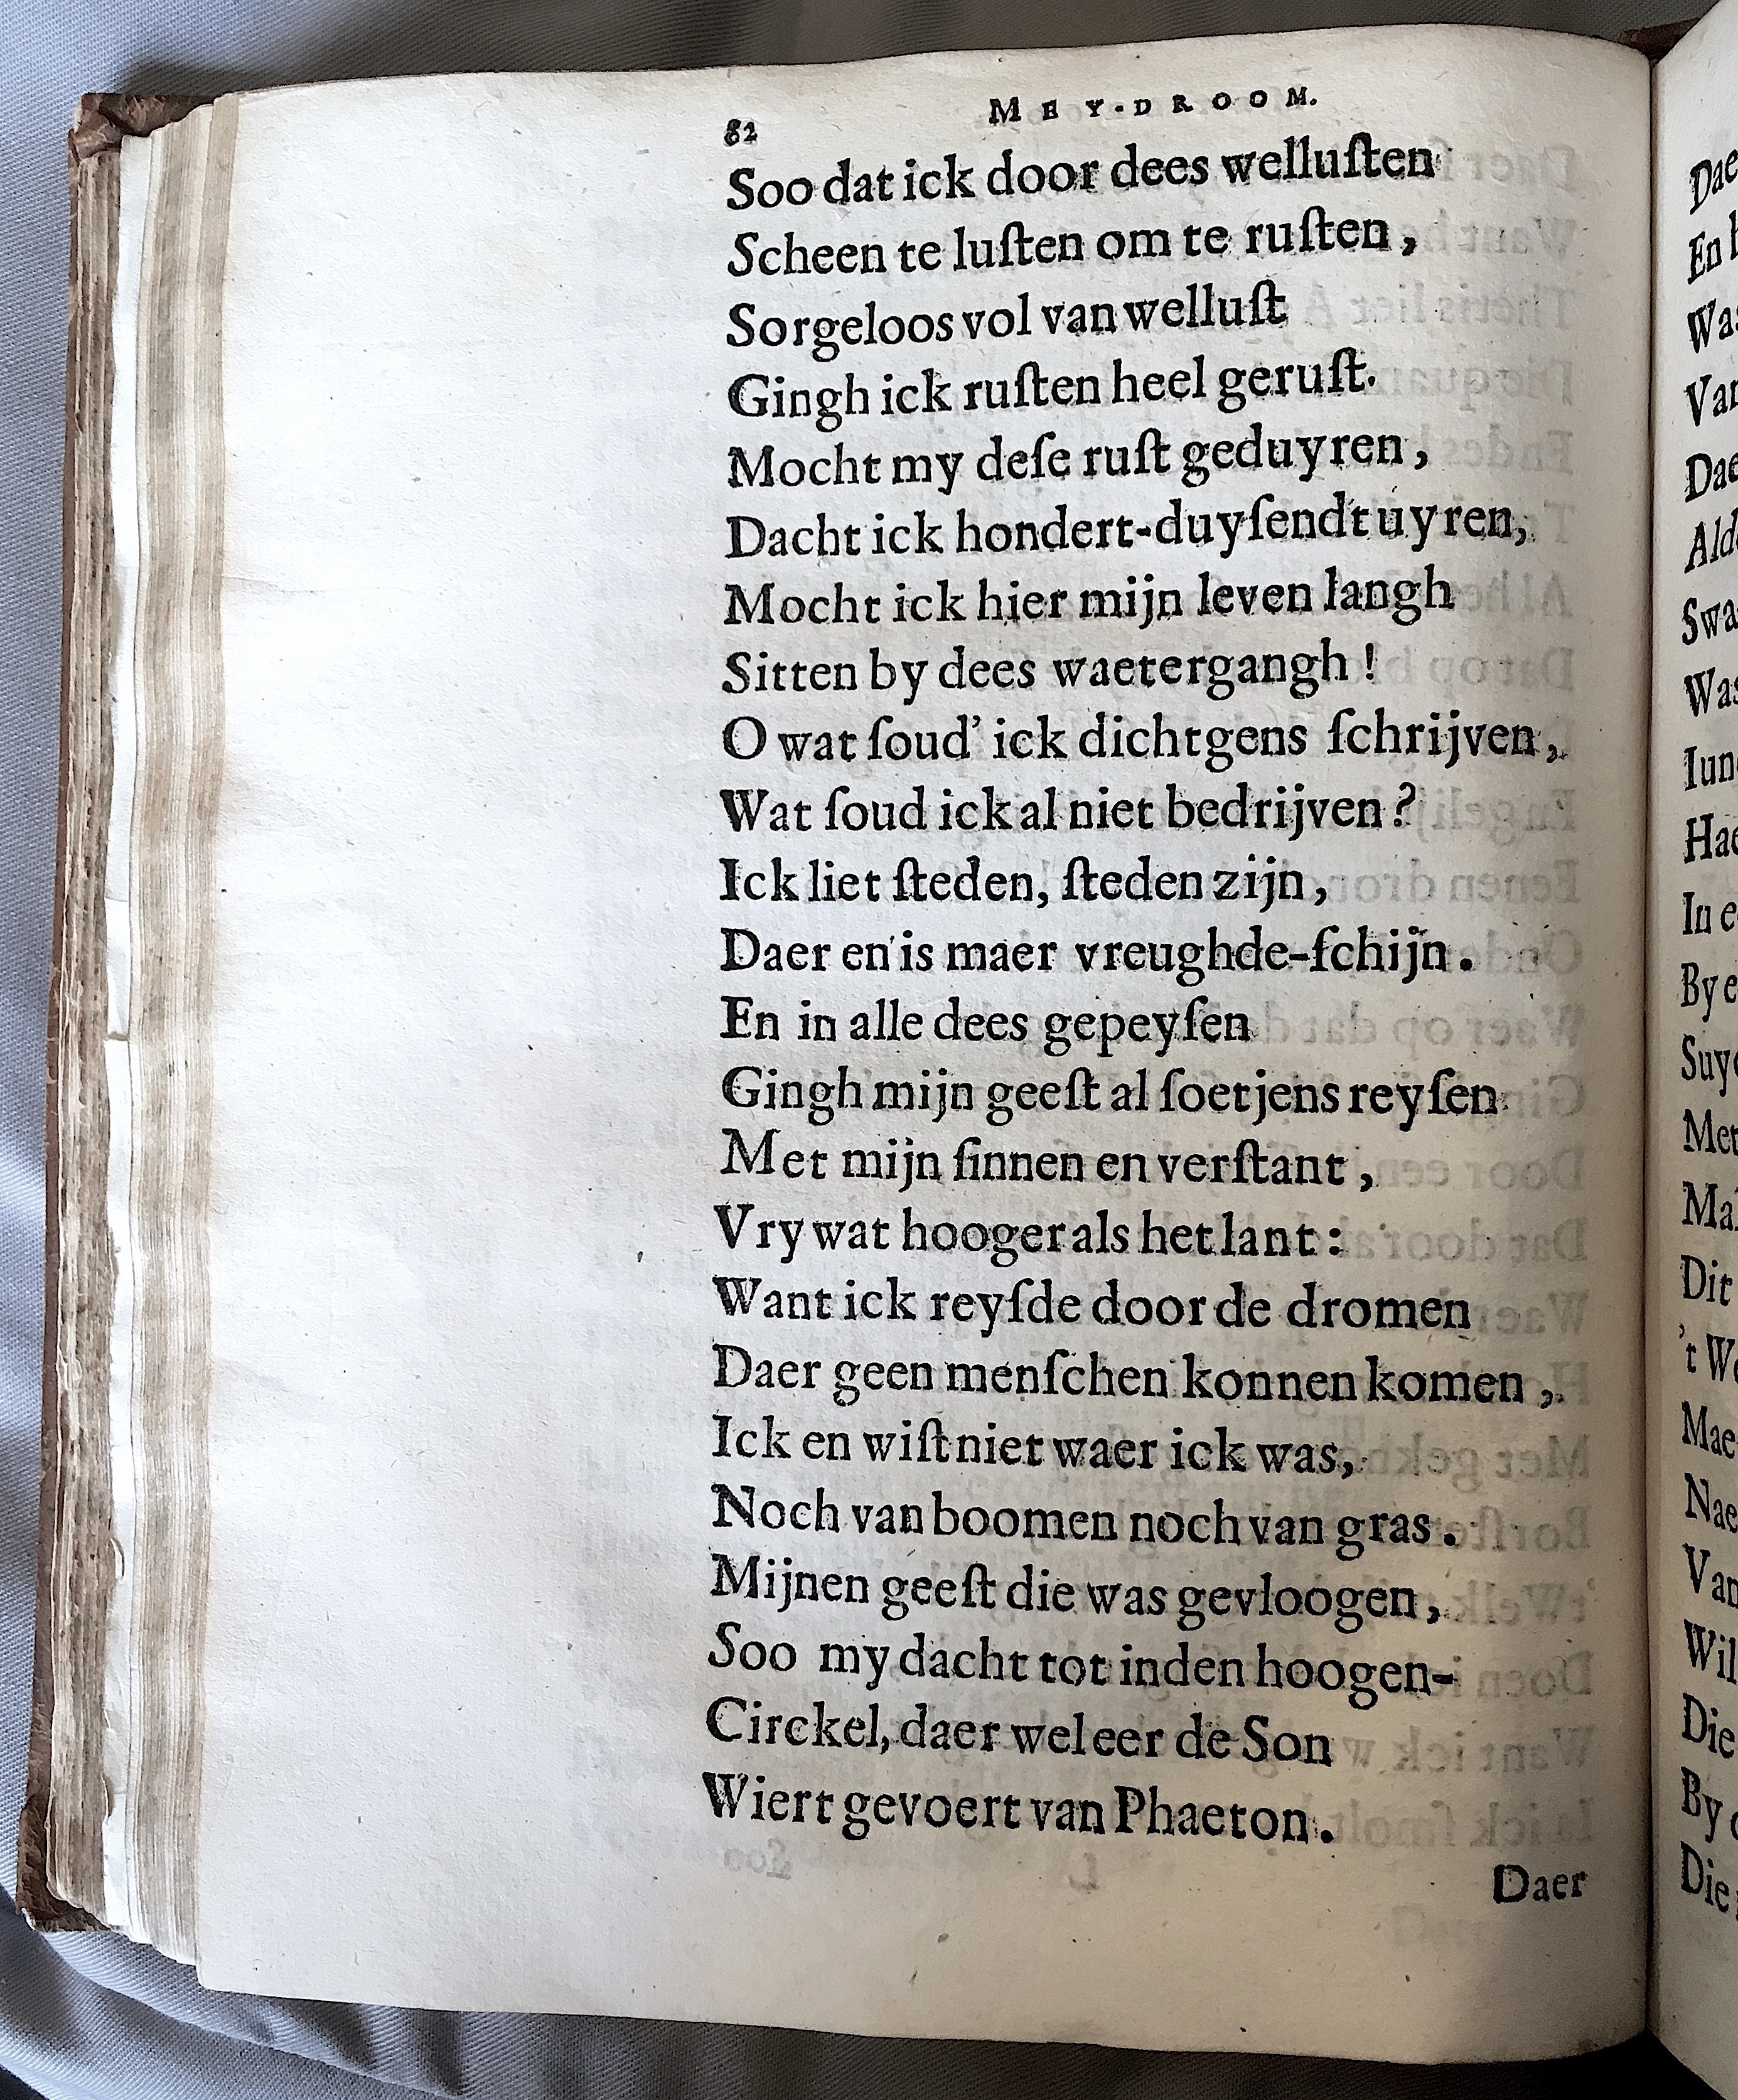 82 MEY-DROOM.
Soo dat ick door dees welluſten
Scheen te luſten om te ruſten,
Sorgeloos vol van welluſt
Gingh ick ruſten heel geruſt.
Mocht my deſe ruſt geduyren,
Dacht ick hondert-duyſendt uyren,
Mocht ick hier mijn leven langh
Sitten by dees waetergangh!
O wat ſoud' ick dichtgens ſchrijven,
Wat ſoud ick al niet bedrijven?
Ick liet ſteden, ſteden zijn,
Daer en is maer vreughde-ſchijn.
En in alle dees gepeyſen
Gingh mijn geeſt al ſoetjens reyſen
Met mijn ſinnen en verſtant,
Vry wat hooger als het lant:
Want ick reyſde door de dromen
Daer geen menſchen konnen komen,
Ick en wiſt niet waer ick was,
Noch van boomen noch van gras.
Mijnen geeſt die was gevloogen,
Soo my dacht tot inden hoogen-
Circkel, daer wel eer de Son
Wiert gevoert van Phaeton.
Daer
Dae
En
Was
Van
Dae
Ald
Swa
Was
Iun
Hae
In e
By e
Suy
Met
Mal
Dit
't W
Mae
Nae
Van
Wil
Die
By
Die